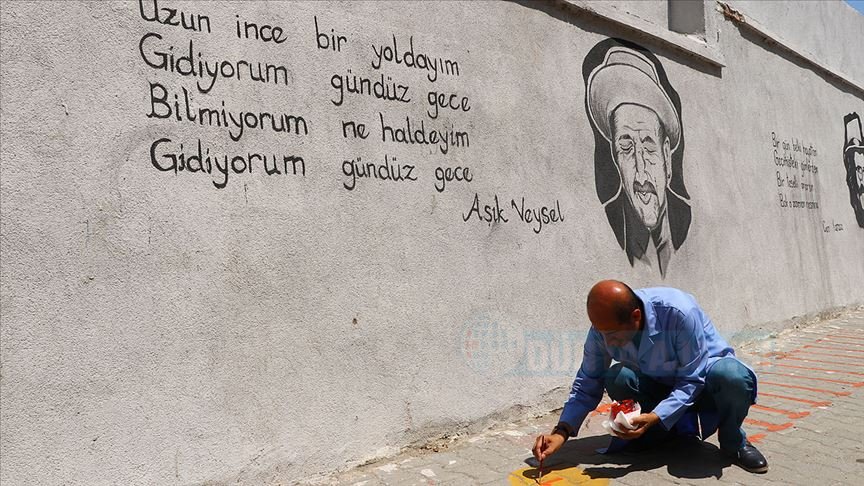 Uzun ince bir yoldayım
Gidiyorum gündüz gece
Bilmiyorum ne haldeyim
Gidiyorum gündüz gece
Aşık Veysel
Bir gün belki hayattan
Bir